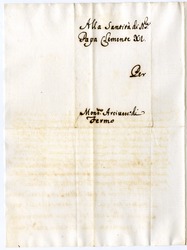 Alla Santità di N.
Papa Clemente XI.
Per
Mons. Arcivesc. di
Fermo